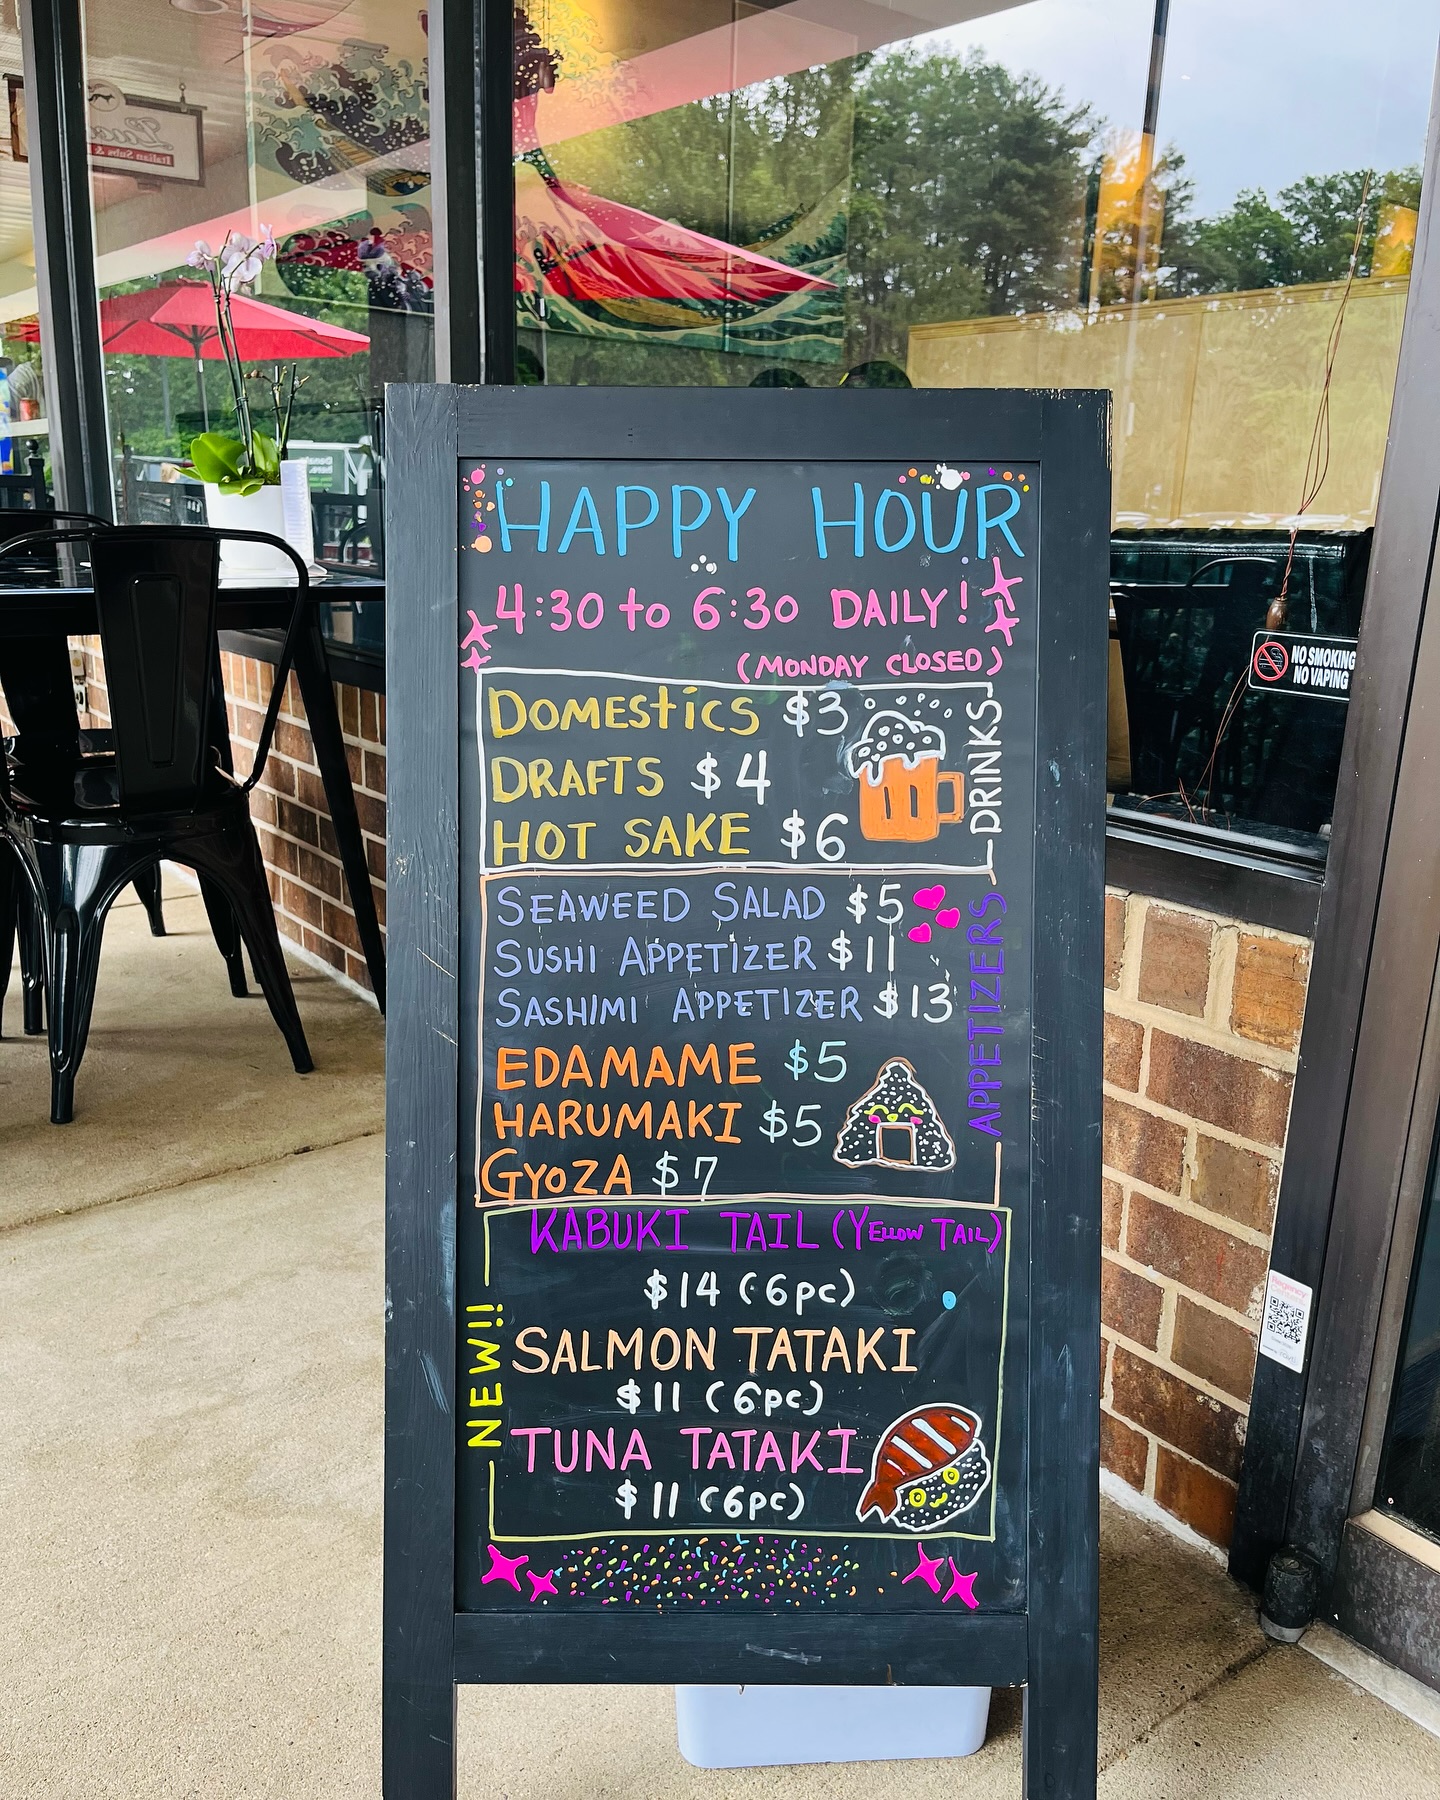 HAPPY HOUR
4:30 to 6:30 DAILY!
(MONDAY CLOSED)
DOMEStiCS $3
DRAFTS $4
HOT SAKE $6
DRINKS
SEAWEED SALAD $5
SUSHI APPETIZER $11
SASHIMI APPETIZER $13
EDAMAME $5
HARUMAKI $5
GYOZA $7
APPETIZERS
KABUKI TAIL (YELLOW TAIL)
$14 (6pc)
SALMON TATAKI
$11 (6pc)
TUNA TATAKI
$11 (6pc)
NEW!!
NO SMOKING
NO VAPING
Italian Subs &
Donate
here.
Regency